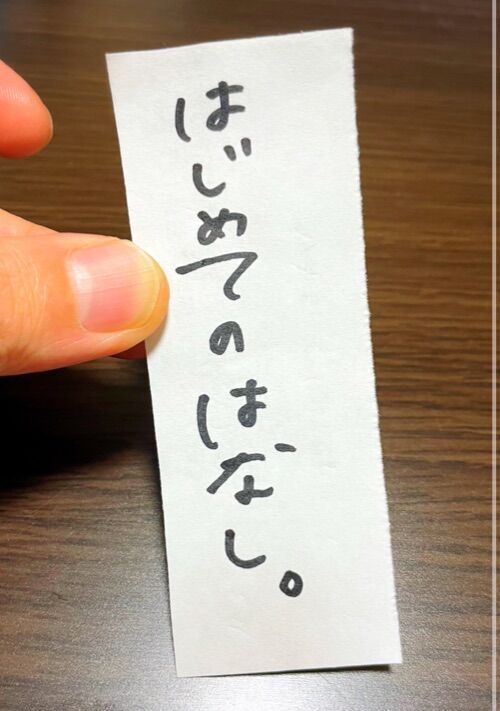 はじめてのはなし。